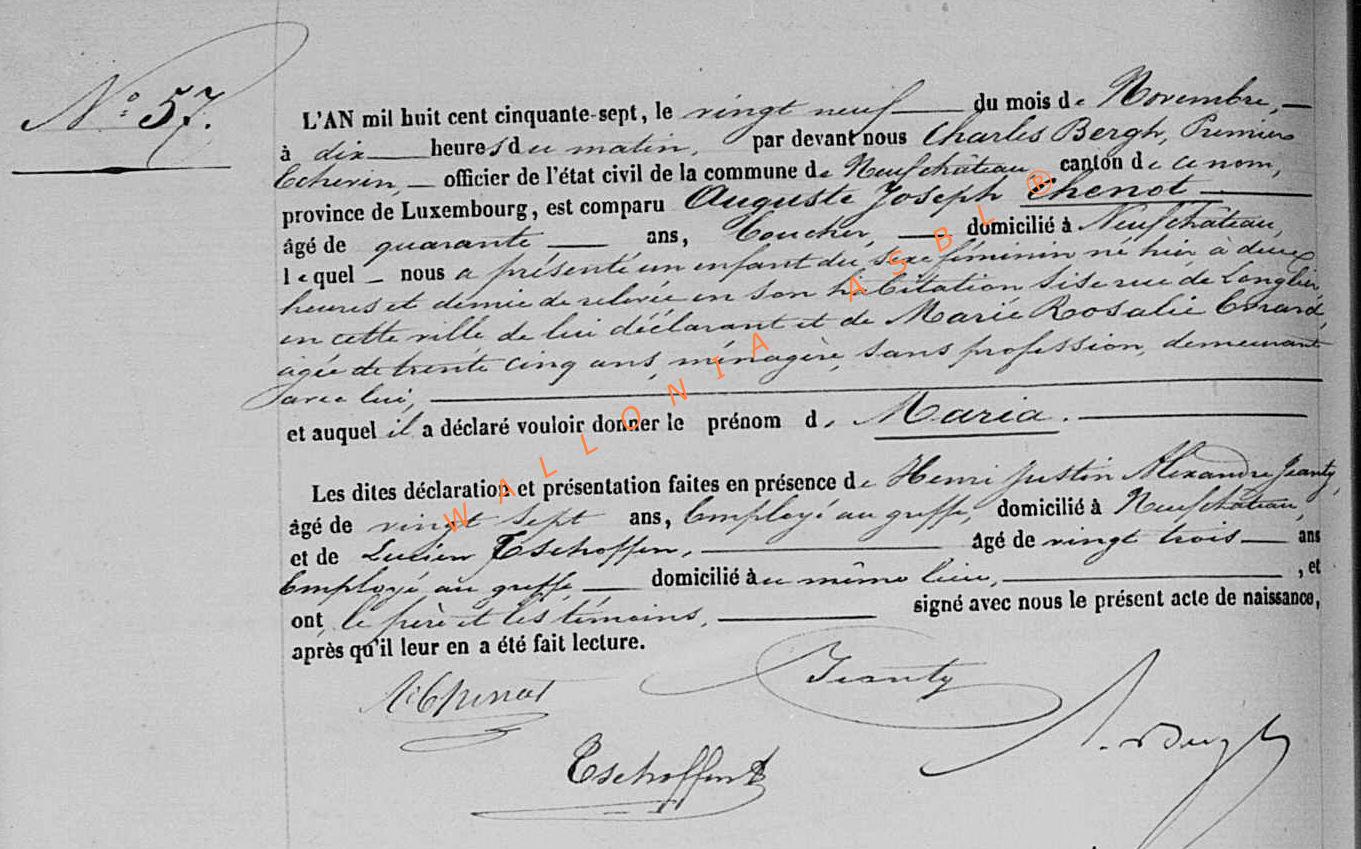 N° 57.
L'AN mil huit cent cinquante-sept, le vingt neuf du mois de Novembre,
à dix heures du matin, par devant nous Charles Bergh, Premier
Echevin, officier de l'état civil de la commune de Neufchâteau, canton de ce nom,
province de Luxembourg, est comparu Auguste Joseph Chenot
âgé de quarante ans, domicilié à Neufchâteau,
lequel nous a présenté un enfant du sexe féminin né hier à deux
heures et demie de relevée en son habitation sise rue de Longlier
en cette ville de lui déclarant et de Marie Rosalie
agée de trente cinq ans, ménagère, sans profession, demeurant
avec lui,
et auquel il a déclaré vouloir donner le prénom de Maria.
Les dites déclaration et présentation faites en présence de Henri Justin Alexandre Jeanty,
âgé de vingt sept ans, Employé au greffe, domicilié à Neufchâteau,
et de Lucien Tschoffen, âgé de vingt trois ans
Employé au greffe, domicilié au même lieu, , et
ont, le père et les témoins, signé avec nous le présent acte de naissance,
après qu'il leur en a été fait lecture.
AChenot
Jeanty
Tschoffen
Bergh
WALLONIA ASBL ®